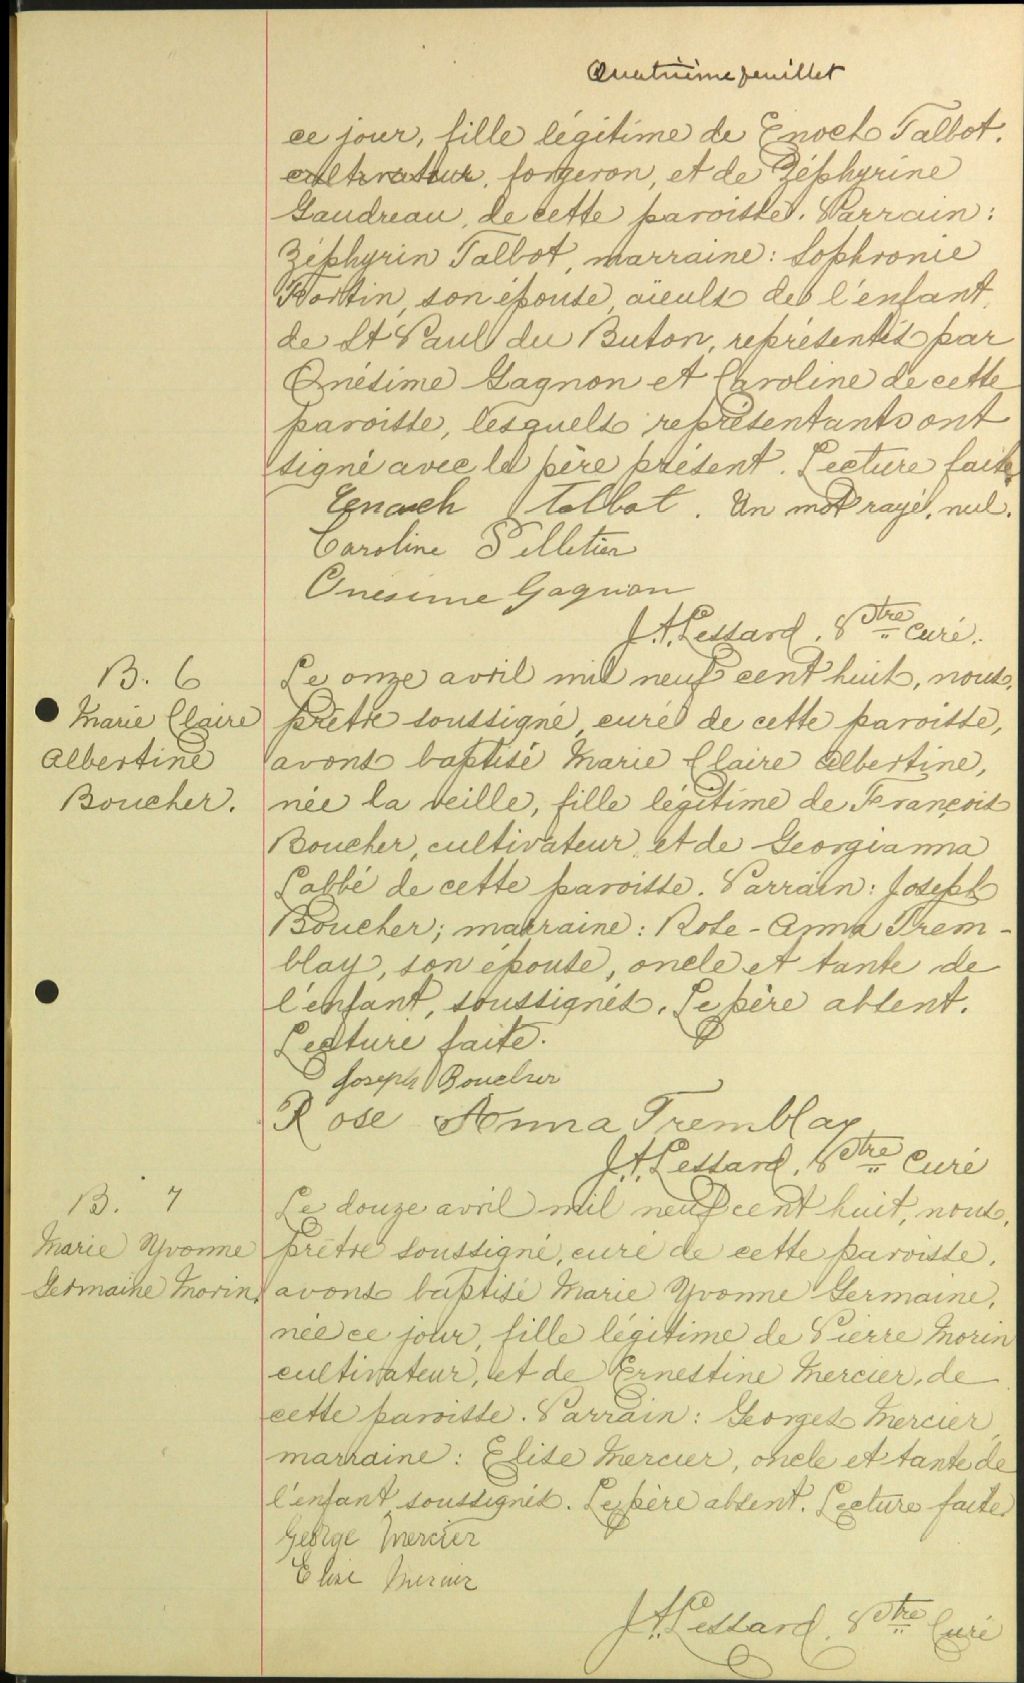 Quatrième feuillet
ce jour, fille légitime de Enoch Talbot,
cultivateur, forgeron, et de Zéphyrine
Gaudreau, de cette paroisse. Parrain:
Zéphyrin Talbot, marraine: Sophronie
Fortin, son épouse, aïeuls de l'enfant,
de St Paul du Buton, représentés par
Onésime Gagnon et Caroline de cette
paroisse, lesquels représentants ont
signé avec le père présent. Lecture faite.
Enoch Talbot. Un mot rayé, nul.
Caroline Pelletier
Onesime Gagnon
J.A. Lessard, Ptre Curé.
B. 6
Marie Claire
Albertine
Boucher.
Le onze avril mil neuf cent huit, nous,
prêtre soussigné, curé de cette paroisse,
avons baptisé Marie Claire Albertine,
née la veille, fille légitime de François
Boucher, cultivateur, et de Georgianna
Labbé de cette paroisse. Parrain: Joseph
Boucher; marraine: Rose-Anna Trem-
blay, son épouse, oncle et tante de
l'enfant, soussignés. Le père absent.
Lecture faite.
Joseph Boucher
Rose Anna Tremblay
J.A. Lessard, Ptre Curé
B. 7
Marie Yvonne
Germaine Morin.
Le douze avril mil neuf cent huit, nous,
prêtre soussigné, curé de cette paroisse,
avons baptisé Marie Yvonne Germaine,
née ce jour, fille légitime de Pierre Morin
cultivateur, et de Ernestine Mercier, de
cette paroisse. Parrain: Georges Mercier,
marraine: Elise Mercier, oncle et tante de
l'enfant, soussignés. Le père absent. Lecture faite.
George Mercier
Elise Mercier
J.A. Lessard, Ptre Curé